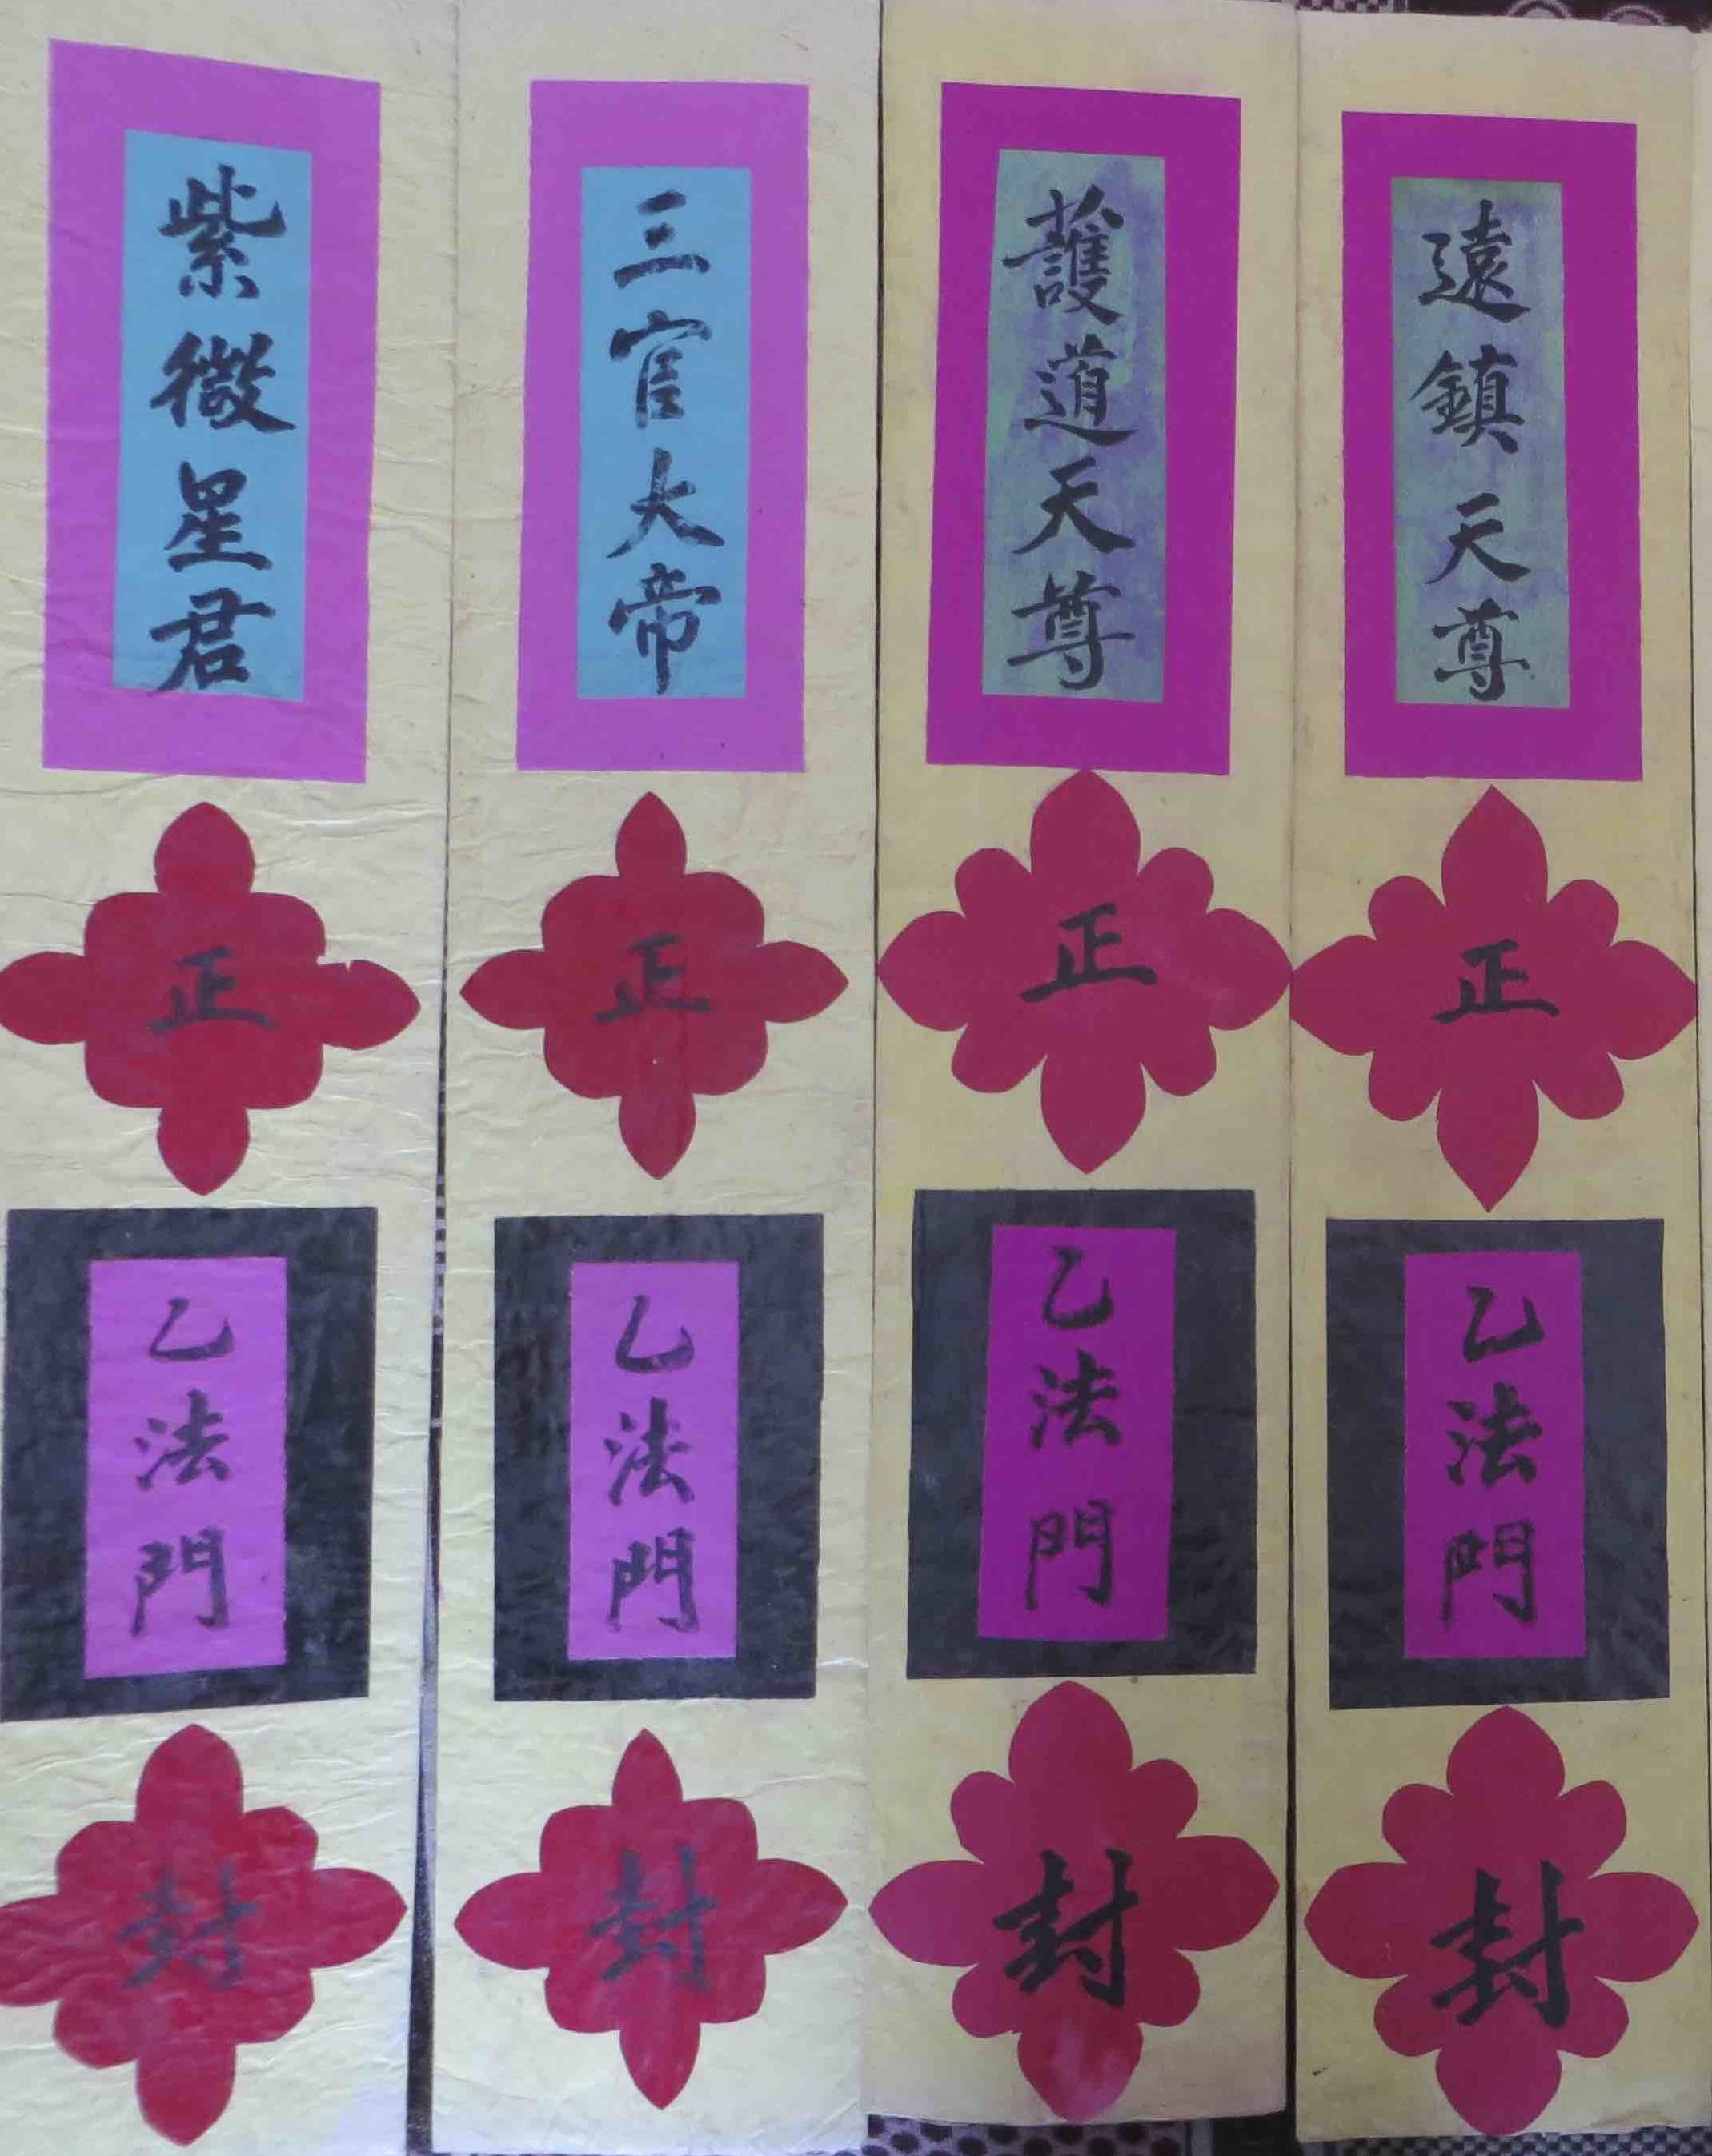 紫微星君
正
乙法門
封
三官大帝
正
乙法門
封
護道天尊
正
乙法門
封
遠鎮天尊
正
乙法門
封